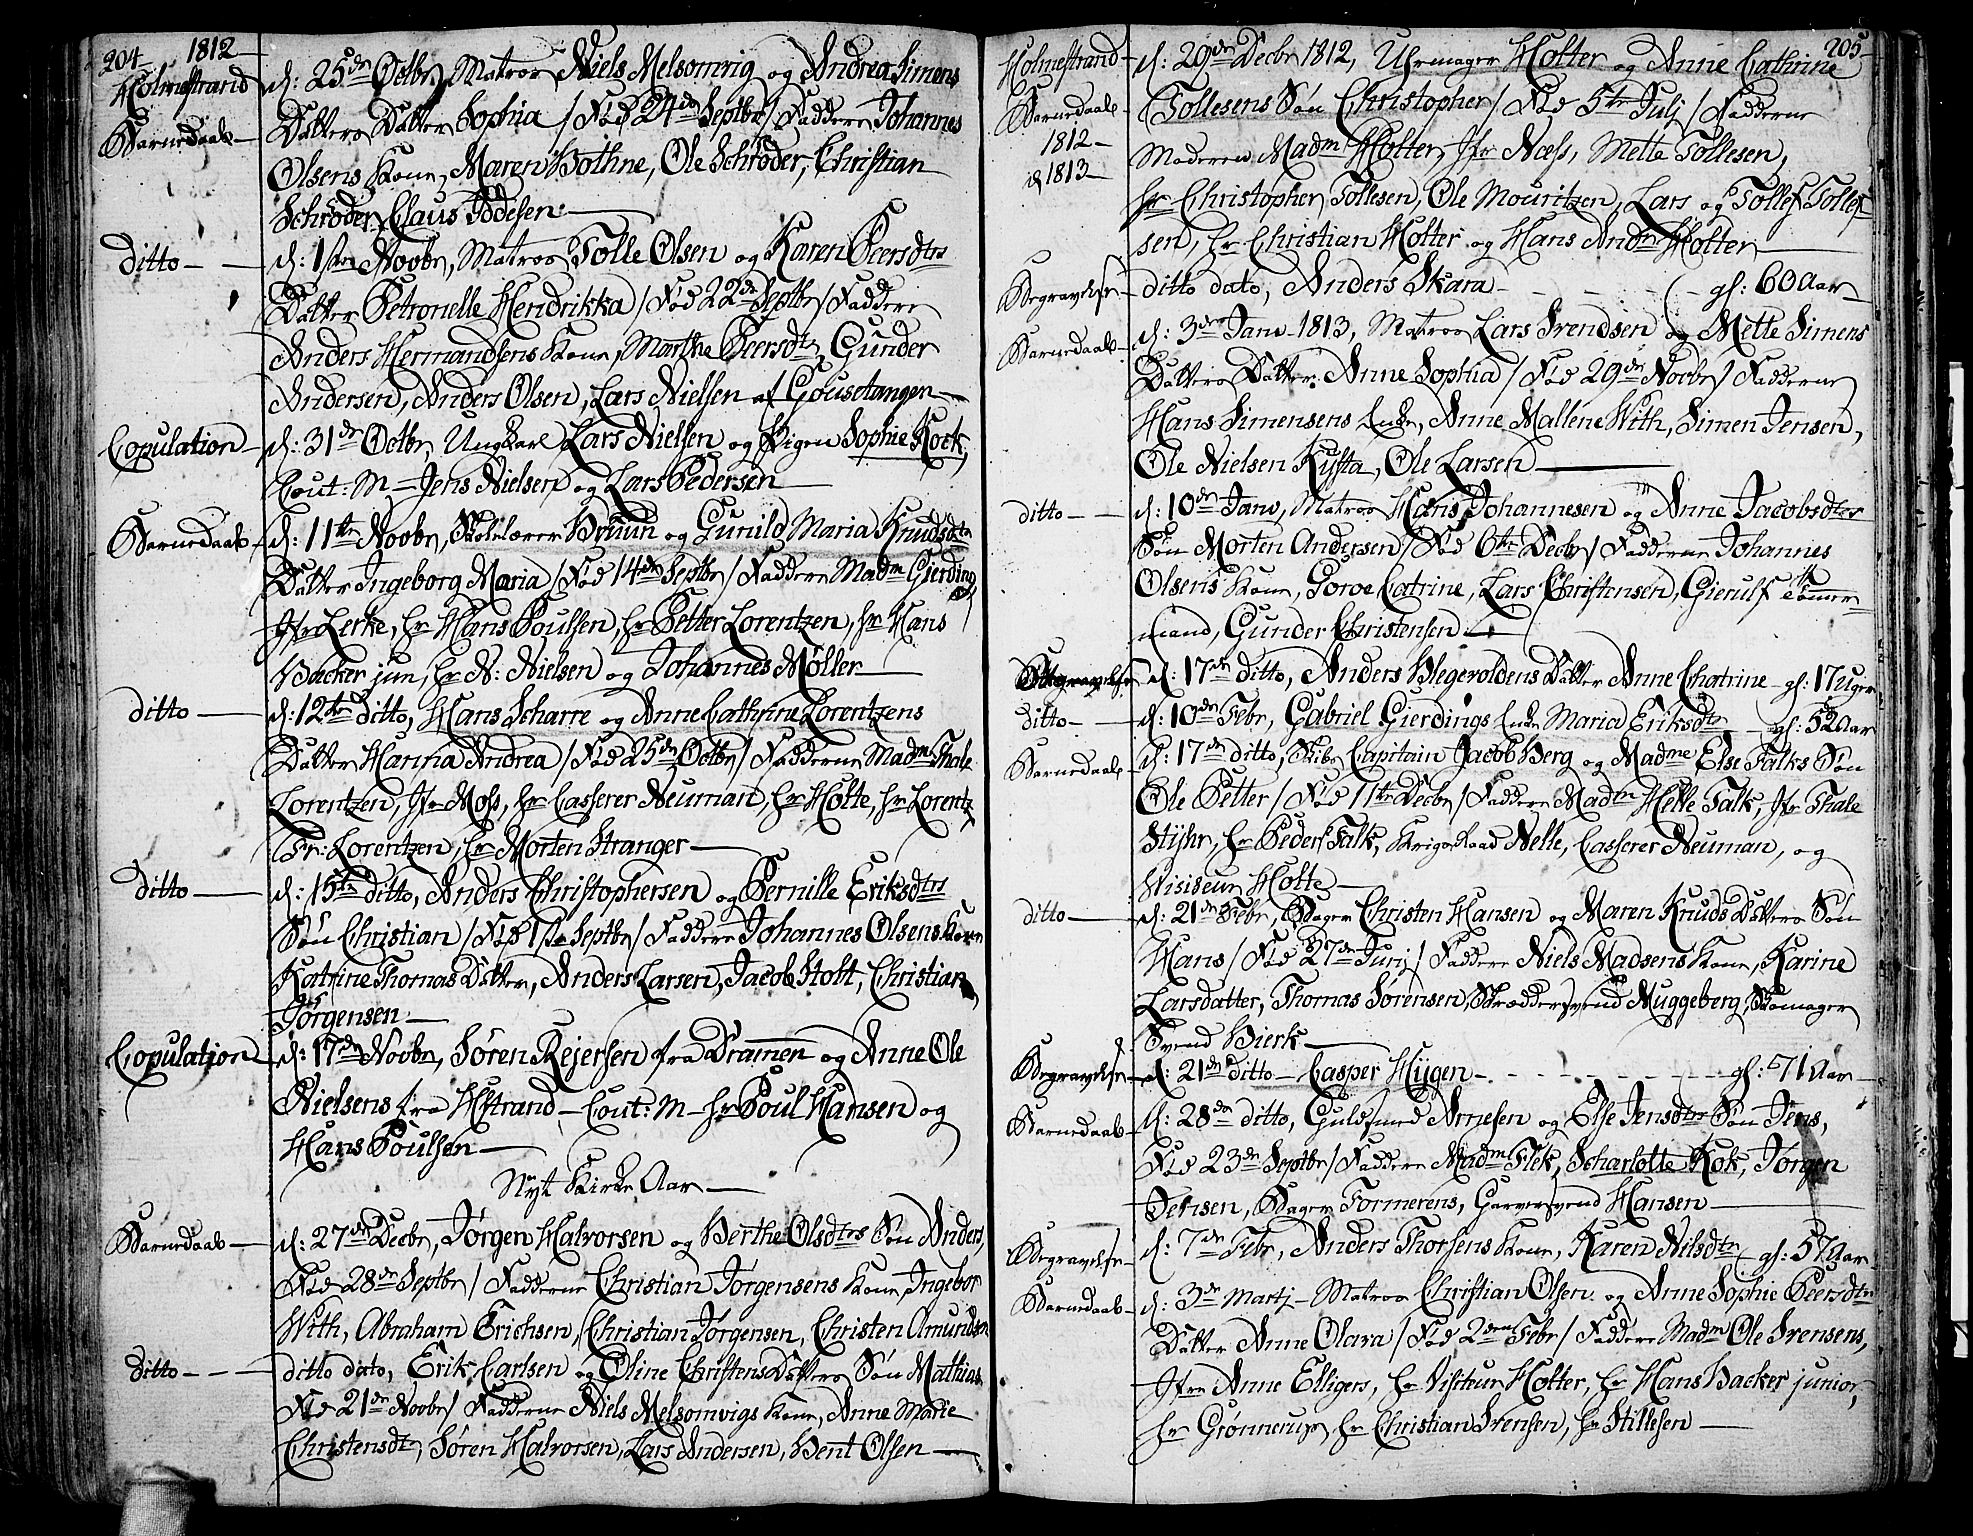 204 1812
Holmestrand d: 25de Octbr, Matros Niels Melsomvig og Andrea Simens
Barnedaab Datters Datter Sophia / Fød 24de Septbr / Faddere Johannes
Olsens Kone, Maren Bothne, Ole Schrøder, Christian
Schrøder, Claus Iddesen
ditto d: 1ste Novbr, Matros Tolle Olsen og Karen Peersdtrs
Datter Petronelle Hendrikka / Fød 22de Septbr / Faddere
Anders Hermandsens Kone, Marthe Peersdtr, Gunder
Andersen, Anders Olsen, Lars Nielsen af Gousetangen
Copulation d: 31de Octbr, Ungkarl Lars Nielsen og Pigen Sophie Kock,
Cout: M – Jens Nielsen og Lars Pedersen
Barnedaab d: 11te Novbr, Skolelærer Bruun og Gunild Maria Knudsdtrs
Datter Ingeborg Maria / Fød 14de Septbr / Faddere Madm Gierding,
Jfr Lerke, Hr Hans Poulsen, Hr Petter Lorentzen, Hr Hans
Backer jun, Hr N: Nielsen og Johannes Møller
ditto d: 12te ditto, Hans Scharre og Anne Cathrine Lorentzens
Datter Hanna Andrea / Fød 25de Octbr / Fadderne Madm Thale
Lorentzen, Jfr Moss, Hr Casserer Neuman, Hr Holte, Hr Lorentz
Fr: Lorentzen, Hr Morten Stranger
ditto d: 15de ditto, Anders Christophersen og Pernille Eriksdtrs
Søn Christian / Fød 1ste Septbr / Faddere Johannes Olsens Kone
Katrine Thomas Datter, Anders Larsen, Jacob Stolt, Christian
Jørgensen
Copulation d: 17de Novbr, Søren Rejersen fra Dramen og Anne Ole
Nielsens fra Hstrand – Cout: M – Hr Poul Hansen og
Hans Poulsen
Nyt Kirke Aar
Barnedaab d: 27de Decbr, Jørgen Halvorsen og Berthe Olsdtrs Søn Anders,
Fød 28de Septbr / Fadderne Christian Jørgensens Kone, Ingebor
With, Abraham Erichsen, Christian Jørgensen, Christen Amundsen
ditto ditto dato, Erik Carlsen og Oline Christens Datters Søn Mathias
Fød 21de Novbr / Fadderne Niels Melsomvigs Kone, Anne Marie
Christensdtr, Søren Halvorsen, Lars Andersen, Bent Olsen
205
Holmestrand d: 29de Decbr 1812, Uhrmager Holter og Anne Cathrine
Barnedaab Tollesens Søn Christopher / Fød 5te Julj / Fadderne
1812 Moderen Madm Holter, Jfr Næss, Mette Tollesen,
& 1813 Hr Christopher Tollesen, Ole Mouritzen, Lars og Tollef Tollef
sen, Hr Christian Holter og Hans Andr Holter
Begravelse ditto dato, Anders Skara gl: 60 Aar
Barnedaab d: 3de Janv 1813, Matros Lars Svendsen og Mette Simens
Datters Datter Anne Sophia / Fød 29de Novbr / Fadderne
Hans Simensens Enke, Anne Mallene With, Simen Jensen,
Ole Nielsen Kysta, Ole Larsen
ditto d: 10de Janv, Matros Hans Johannesen og Anne Jacobsdtrs
Søn Morten Andersen / Fød 6te Decbr / Fadderne Johannes
Olsens Kone, Torve Catrine, Lars Christensen, Gierulf Tømmer
mand, Gunder Christensen
Begravelse d: 17de ditto, Anders Blegevoldens Datter Anne Chatrine – gl: 17 Uger
ditto d: 10de Febr, Gabriel Gierdings Enke Maria Eriksdtr gl: 52 Aar
Barnedaab d: 17de ditto, Skibs Capitain Jacob Berg og Madme Else Falks Søn
Ole Petter / Fød 11te Decbr / Faddere Madm Helle Falk, Jfr Thale
Stijhr, Hr Peder Falk, Krigs Raad Nelle, Casserer Neuman, og
Visiteur Holte
ditto d: 21de Febr, Bager Christen Hansen og Maren Knuds Datters Søn
Hans / Fød 27de Junj / Faddere Niels Madsens Kone, Karine
Larsdatter, Thomas Sørensen, Skræddersvend Muggeberg, Skomager
Svend Bierk
Begravelse d: 21de ditto – Casper Hygen gl: 71 Aar
Barnedaab d: 28de ditto, Guldsmed Arnesen og Else Jensdtrs Søn Jens,
Fød 23de Septbr / Faddere Madm Flek, Scharlotte Kok, Jørgen
Jensen, Bager Formerens, Garversvend Hansen
Begravelse d: 7de Febr, Anders Thorsens Kone, Karen Nilsdtr gl: 57 Aar
Barnedaab d: 3de Martj – Matros Christian Olsen og Anne Sophie Peersdtrs
Datter Anne Olara / Fød 2den Febr / Faddere Madm Ole Svensens,
Jfr Anne Elligers, Hr Visiteur Holter, Hr Hans Backer junior,
Hr Grønnerup, Hr Christian Svensen, Hr Stillesen